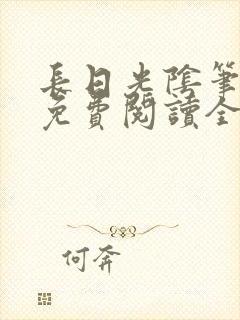 長日光陰筆
免費閱讀全
何奔